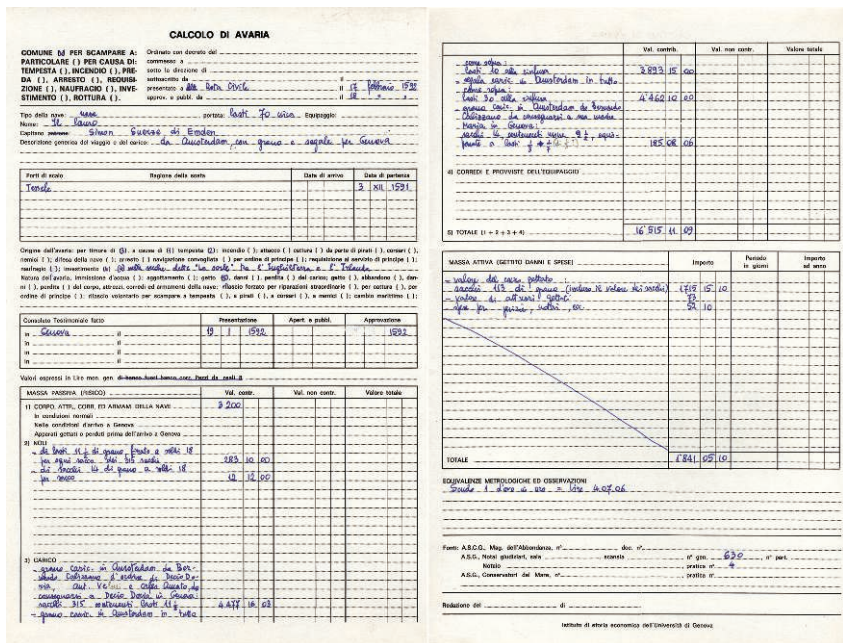 CALCOLO DI AVARIA
COMUNE (x) PER SCAMPARE A:
PARTICOLARE ( ) PER CAUSA DI:
TEMPESTA ( ), INCENDIO ( ), PRE-
DA ( ), ARRESTO ( ), REQUISI-
ZIONE ( ), NAUFRAGIO ( ), INVE-
STIMENTO ( ), ROTTURA ( ).
Ordinato con decreto del
commesso a
sotto la direzione di
sottoscritto da il 17 febbraio 1592
presentato a alla Rota Civile il
approv. e pubbl. da il 18 " "
Tipo della nave: nave portata: lasti 70 circa Equipaggio:
Nome: Il Lauro
Capitano Simon Suerse di Emden
Descrizione generica del viaggio e del carico: da Amsterdam, con grano e segale per Genova
Porti di scalo Ragione della sosta Data di arrivo Data di partenza
Tensle 3 XII 1591
Origine dell'avaria: per timore di ( ), a causa di ( ) tempesta ( ); incendio ( ); attacco ( ) cattura ( ) da parte di pirati ( ), corsari ( ),
nemici ( ); difesa della nave ( ); arresto ( ) navigazione convogliata ( ) per ordine di principe ( ); requisizione al servizio di principe ( );
naufragio ( ); investimento
Natura dell'avaria, immissione d'acqua ( ); appoggiamento ( ); getto, danni, perdita ( ) del carico; getto ( ), abbandono ( ), dan-
ni ( ), perdita ( ) del corpo, attrezzi, corredi ed armamenti della nave; rilascio forzato per riparazioni straordinarie ( ), per cattura ( ), per
ordine di principe ( ); rilascio volontario per scampare a tempesta ( ), a pirati ( ), a corsari ( ), a nemici ( ); cambio marittimo ( );
Consolato Testimoniale fatto Presentazione Apert. e pubbl. Approvazione
in Genova il 19 1 1592 1592
in il
in il
in il
Valori espressi in Lire mon. gen.
MASSA PASSIVA (RISICO) Val. contr. Val. non contr. Valore totale
1) CORPO, ATTR., CORR. ED ARMAM. DELLA NAVE 3 200
In condizioni normali
Nelle condizioni d'arrivo a Genova
Apparati gettati o perduti prima dell'arrivo a Genova
2) NOLI
di grano a soldi 18
per ogni sacco dei 315 sacchi 283 10 00
di sacchi 14 di grano a soldi 18
per sacco 12 12 00
3) CARICO
- grano caric. in Amsterdam da Ber-
d'ordine di Decio Do-
ria,
consegnarsi a Decio Doria in Genova:
sacchi 315 contenenti lasti 11 4 477 16 03
- grano caric. in Amsterdam in tutto
Val. contrib. Val. non contr. Valore totale
come sopra:
lasti 10 alla rinfusa 3 893 15 00
- segala caric. in Amsterdam in tutto
come sopra:
lasti 30 alla rinfusa 4'462 10 00
- grano caric. in Amsterdam da Bernardo
da consegnarsi a sua madre
Maria in Genova:
sacchi 14 contenenti
a lasti 185 08 06
4) CORREDI E PROVVISTE DELL'EQUIPAGGIO
5) TOTALE (1 + 2 + 3 + 4) 16'515 11 09
MASSA ATTIVA (GETTITO DANNI E SPESE) Importo Periodo in giorni Importo ad anno
- valore del carico gettato:
sacchi 113 di grano (incluso il valore dei sacchi) 1715 15 10
- valore di attrezzi gettati 73
- spese per perizie, notari, ecc. 52 10
TOTALE 1'841 05 10
EQUIVALENZE METROLOGICHE ED OSSERVAZIONI
Scudo 1 d'oro in oro = Lire 4.07.06
Fonti: A.S.C.G., Mag. dell'Abbondanza, n° doc. n°
A.S.G., Notai giudiziari, sala scansia n° gen. 630 n° part.
Notaio pratica n° 4
A.S.G., Conservatori del Mare, n° pratica n°
Redazione del di
Istituto di storia economica dell'Università di Genova